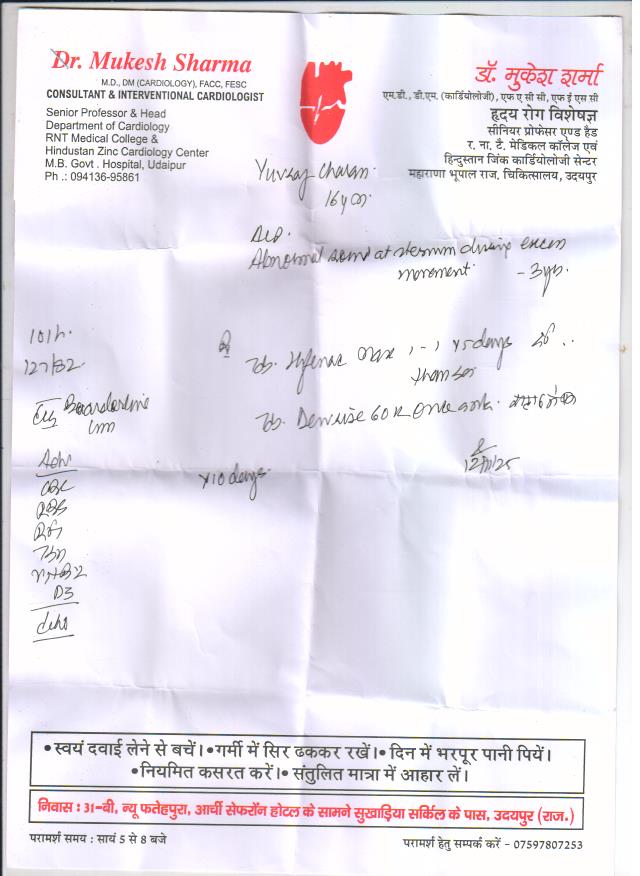 Dr. Mukesh Sharma
M.D., DM (CARDIOLOGY), FACC, FESC
CONSULTANT & INTERVENTIONAL CARDIOLOGIST
Senior Professor & Head
Department of Cardiology
RNT Medical College &
Hindustan Zinc Cardiology Center
M.B. Govt . Hospital, Udaipur
Ph .: 094136-95861
डॉ. मुकेश शर्मा
एम.डी., डी.एम. (कार्डियोलोजी), एफ ए सी सी, एफ ई एस सी
हृदय रोग विशेषज्ञ
सीनियर प्रोफेसर एण्ड हैड
र. ना. टै. मेडिकल कॉलेज एवं
हिन्दुस्तान जिंक कार्डियोलोजी सेन्टर
महाराणा भूपाल राज. चिकित्सालय, उदयपुर
Yuvraj Charan
16
Abnormal sound at sternum during
movement - 3
101
127/82
Tab. max 1-1 x 5 days
Tab. 60 K once
Adv
CBC
x 10 days
D3
• स्वयं दवाई लेने से बचें। • गर्मी में सिर ढककर रखें। • दिन में भरपूर पानी पियें।
• नियमित कसरत करें। • संतुलित मात्रा में आहार लें।
निवास : 31-बी, न्यू फतेहपुरा, आर्ची सेफरॉन होटल के सामने सुखाड़िया सर्किल के पास, उदयपुर (राज.)
परामर्श समय : सायं 5 से 8 बजे
परामर्श हेतु सम्पर्क करें - 07597807253